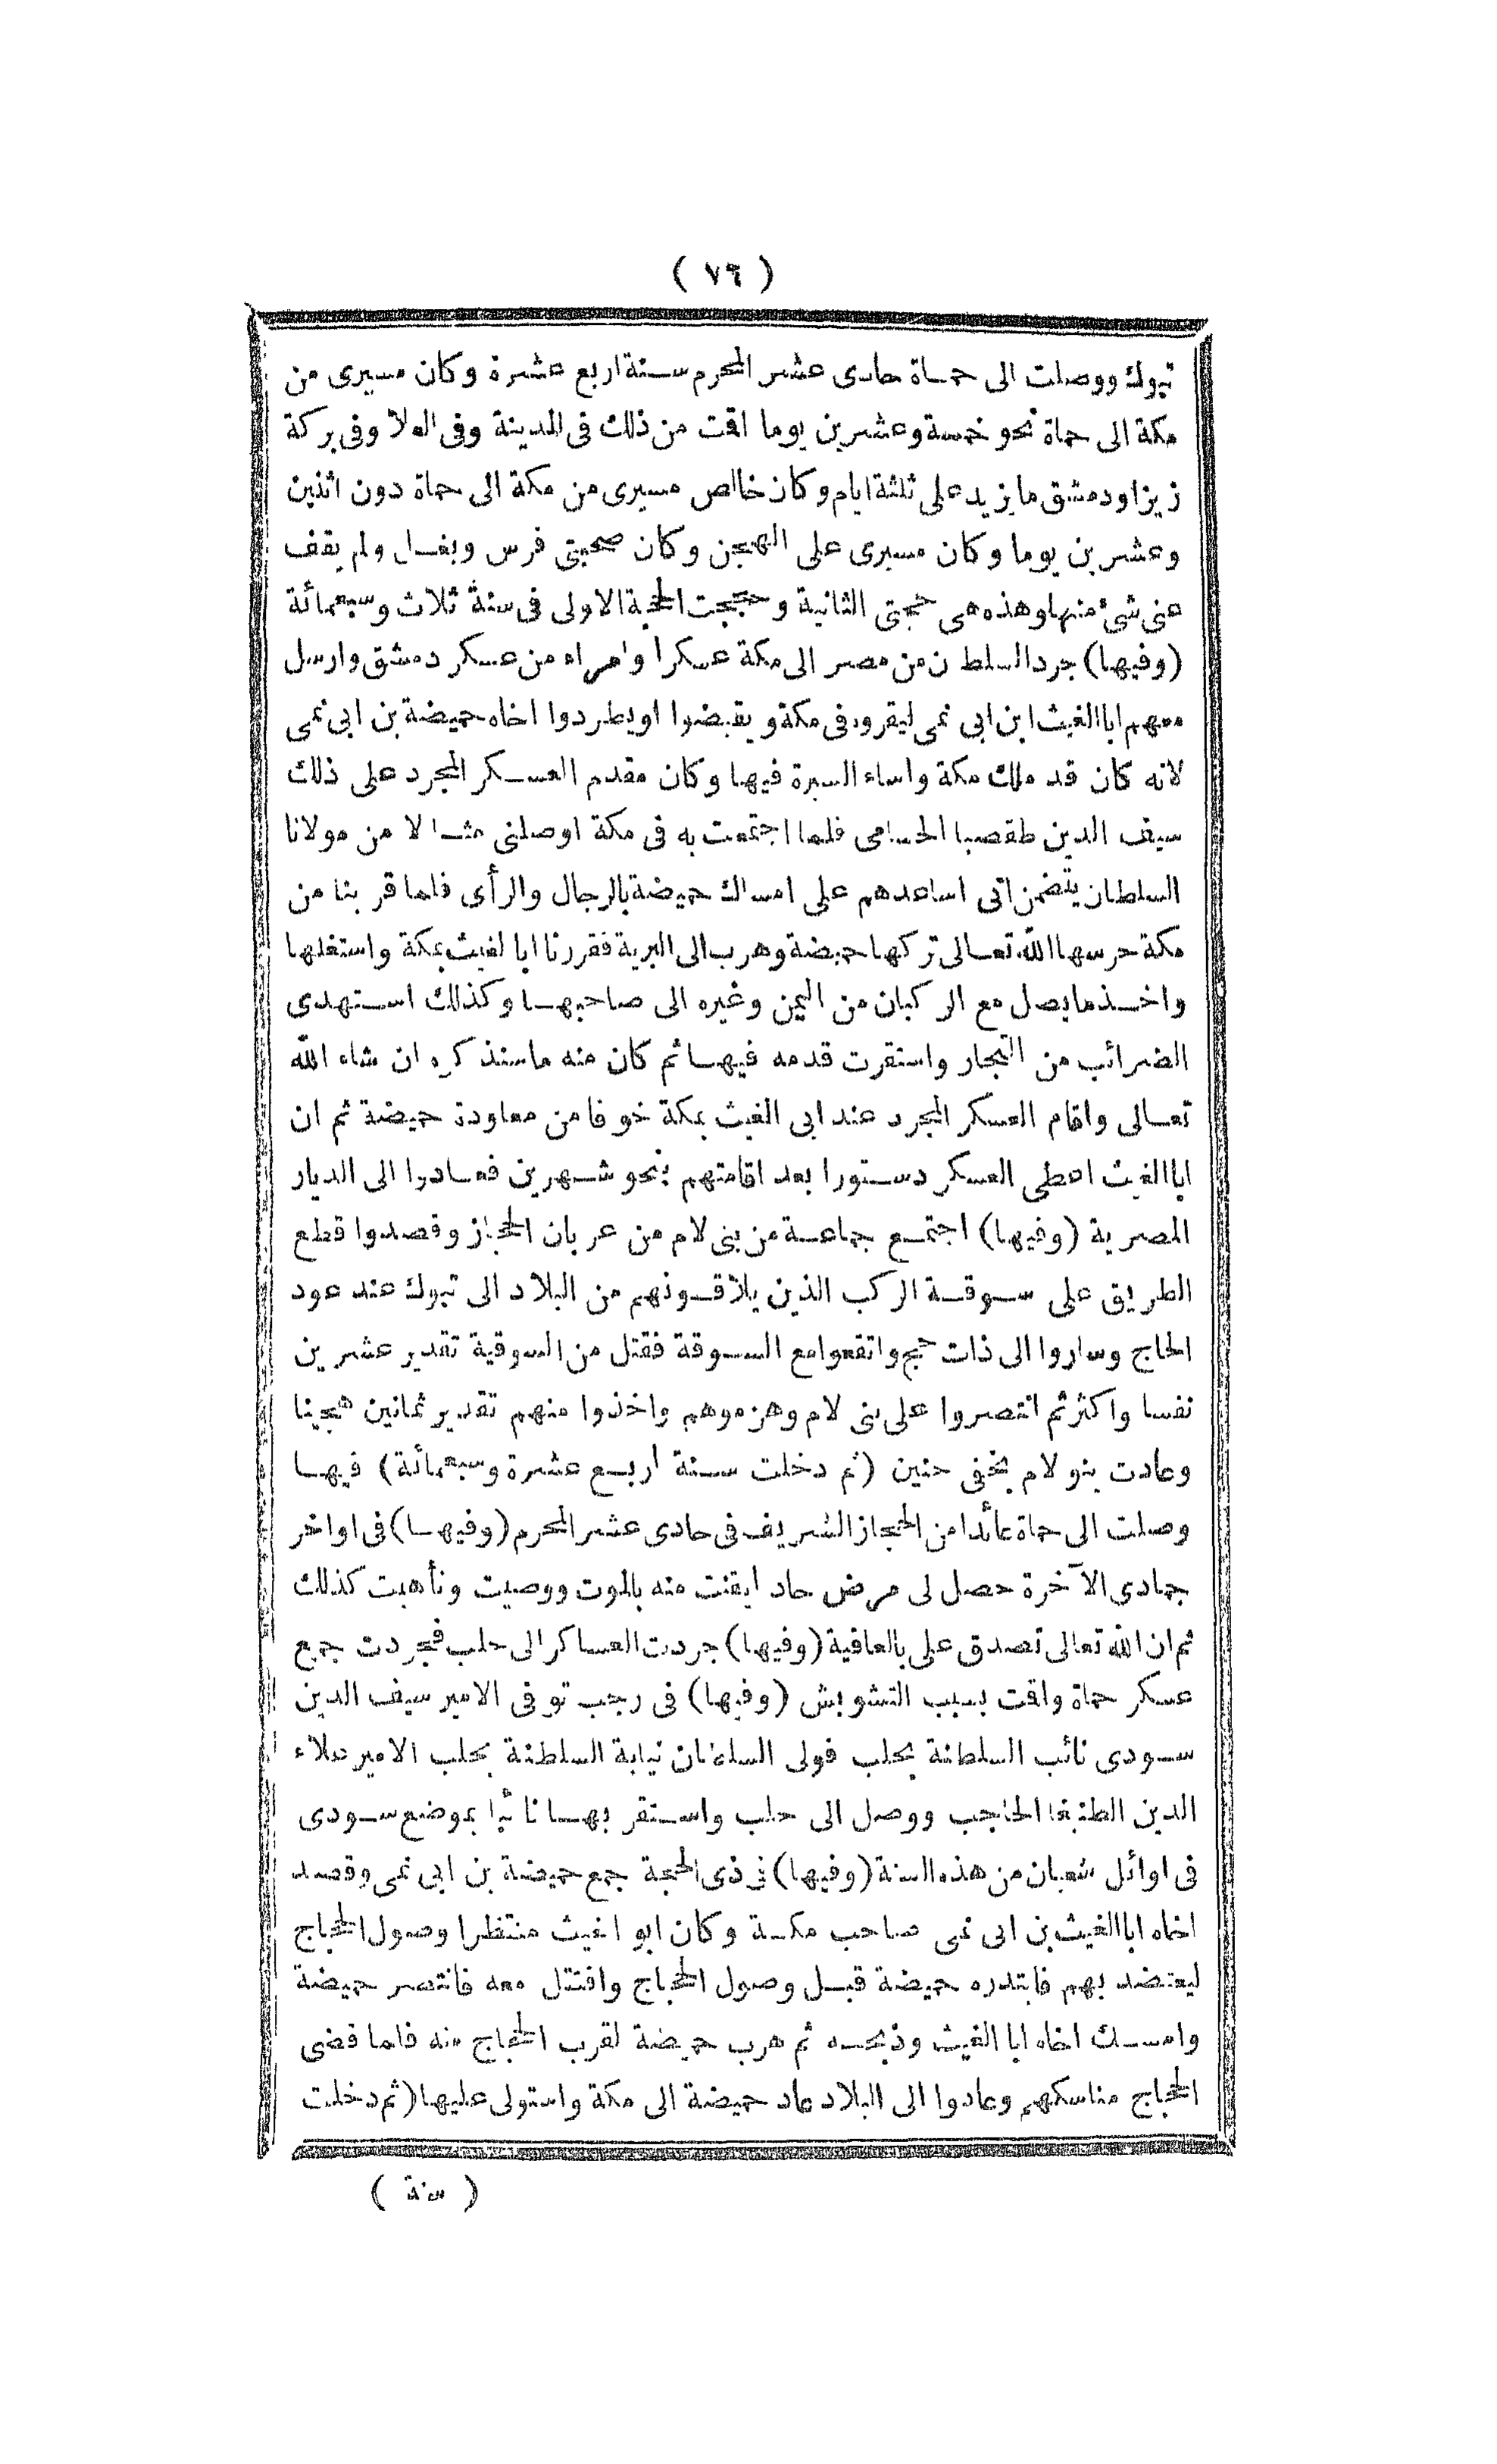 ( ٧٦ )
تبوك ووصلت الى حماة حادى عشر المحرم سنة اربع عشرة وكان مسيرى من
مكة الى حماة نحو خمسة وعشرين يوما اقت من ذلك فى المدينة وفى العلا وفى بركة
زيزا ودمشق ما يزيد على ثلثة ايام وكان خالص مسيرى من مكة الى حماة دون اثنين
وعشرين يوما وكان مسيرى على الهجن وكان صحبتى فرس وبغل ولم يقف
عنى شئ منها وهذه هى حجتى الثانية وحججت الحجة الاولى فى سنة ثلاث وسبعمائة
(وفيها) جرد السلطان من مصر الى مكة عسكرا وامراء من عسكر دمشق وارسل
معهم ابا الغيث ابن ابى نمى ليقروه فى مكة ويقبضوا او يطردوا اخاه حميضة بن ابى نمى
لانه كان قد ملك مكة واساء السيرة فيها وكان مقدم العسكر المجرد على ذلك
سيف الدين طقصبا الحسامى فلما اجتمعت به فى مكة اوصلنى مثالا من مولانا
السلطان يتضمن انى اساعدهم على امساك حميضة بالرجال والرأى فلما قربنا من
مكة حرسها الله تعالى تركها حميضة وهرب الى البرية فقررنا ابا لغيث بمكة واستغلها
واخذ ما يصل مع الركبان من اليمن وغيره الى صاحبها وكذلك استهدى
الضرائب من التجار واستقرت قدمه فيها ثم كان منه ما سنذكره ان شاء الله
تعالى واقام العسكر المجرد عند ابى الغيث بمكة خوفا من معاودة حميضة ثم ان
ابا الغيث اعطى العسكر دستورا بعد اقامتهم بنحو شهرين فعادوا الى الديار
المصرية (وفيها) اجتمع جماعة من بنى لام من عربان الحجاز وقصدوا قطع
الطريق على سوقة الركب الذين يلاقونهم من البلاد الى تبوك عند عود
الحاج وساروا الى ذات حج واتقعوا مع السوقة فقتل من السوقية تقدير عشرين
نفسا واكثر ثم انتصروا على بنى لام وهزموهم واخذوا منهم تقدير ثمانين هجينا
وعادت بنو لام بخفى حنين (ثم دخلت سنة اربع عشرة وسبعمائة) فيها
وصلت الى حماة عائدا من الحجاز الشريف فى حادى عشر المحرم (وفيها) فى اواخر
جمادى الآخرة حصل لى مرض حاد ايقنت منه بالموت ووصيت وتأهبت كذلك
ثم ان الله تعالى تصدق على بالعافية (وفيها) جردت العساكر الى حلب فجردت جميع
عسكر حماة واقت بسبب التشويش (وفيها) فى رجب توفى الامير سيف الدين
سودى نائب السلطنة بحلب فولى السلطان نيابة السلطنة بحلب الامير علاء
الدين الطنبغا الحاجب ووصل الى حلب واستقر بها نائبا بموضع سودى
فى اوائل شعبان من هذه السنة (وفيها) فى ذى الحجة جمع حميضة بن ابى نمى وقصد
اخاه ابا الغيث بن ابى نمى صاحب مكة وكان ابو الغيث منتظرا وصول الحجاج
ليعتضد بهم فابتدره حميضة قبل وصول الحجاج واقتتل معه فانتصر حميضة
وامسك اخاه ابا الغيث وذبحه ثم هرب حميضة لقرب الحجاج منه فلما قضى
الحجاج مناسكهم وعادوا الى البلاد عاد حميضة الى مكة واستولى عليها (ثم دخلت
( سنة )